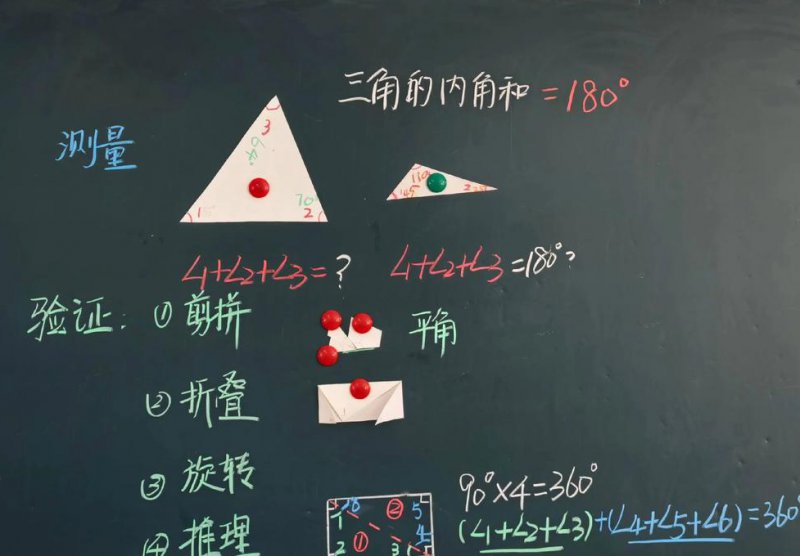 三角的内角和=180°
测量
3
1
70°
2
110°
45
2
∠1+∠2+∠3=?
∠1+∠2+∠3=180°?
验证:①剪拼
平角
②折叠
1
③旋转
90°×4=360°
④推理
1
6
②
5
2
①
3
4
(∠1+∠2+∠3)+(∠4+∠5+∠6)=360°